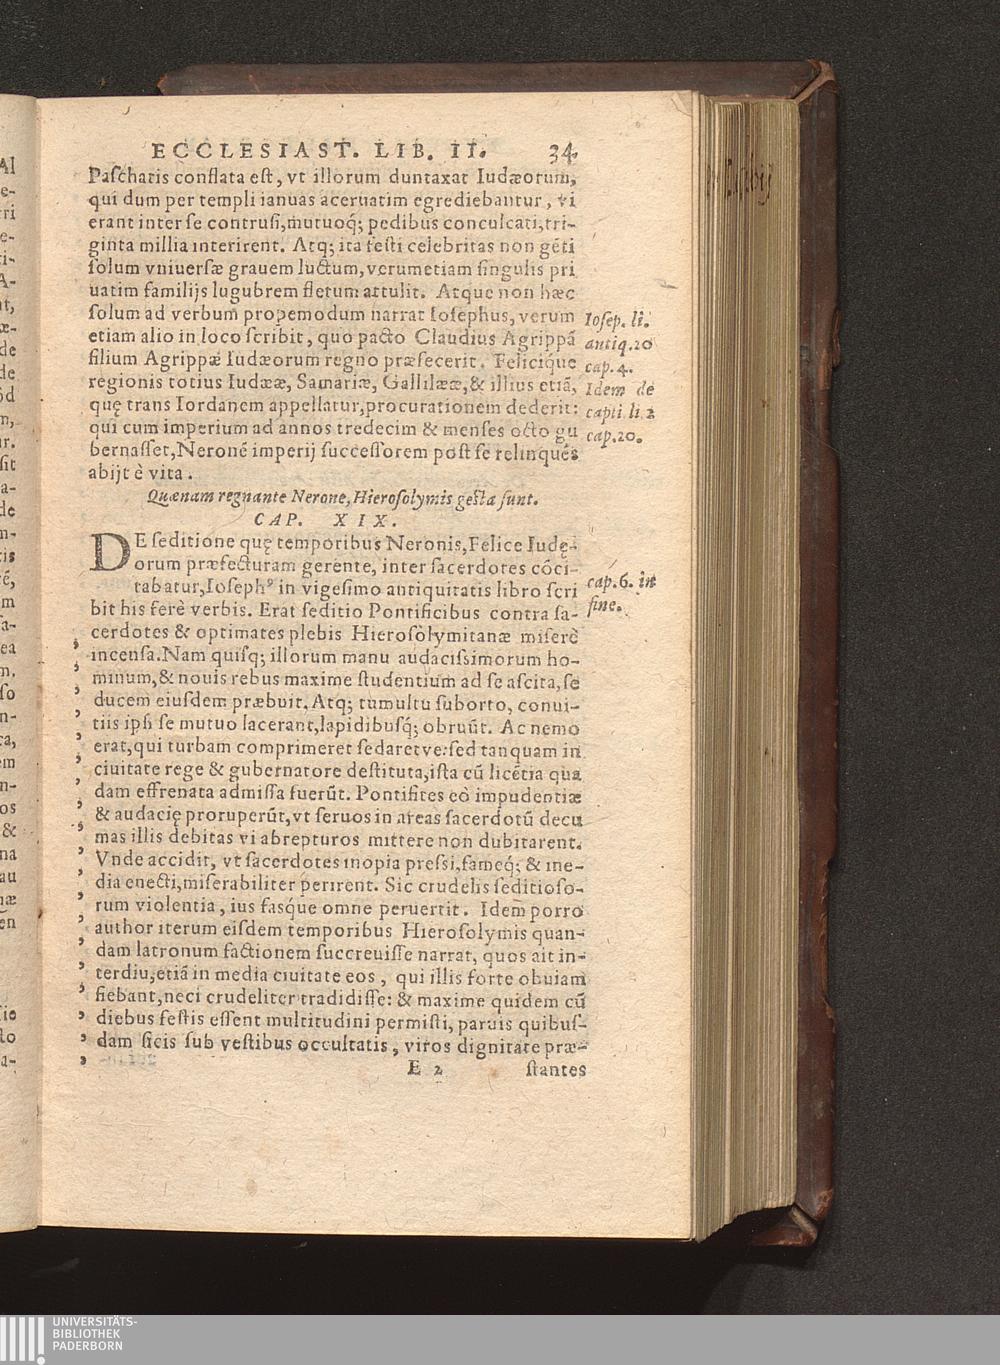 ECCLESIAST. LIB. II. 34
Paſchatis conflata eſt, vt illorum duntaxat Iudæorum,
qui dum per templi ianuas aceruatim egrediebantur, vi
erant inter ſe contruſi, mutuoq́; pedibus conculcati, tri-
ginta millia interirent. Atq; ita feſti celebritas non gẽti
ſolum vniuerſæ grauem luctum, verumetiam ſingulis pri
uatim familijs lugubrem fletum attulit. Atque non hæc
ſolum ad verbum propemodum narrat Ioſephus, verum
etiam alio in loco ſcribit, quo pacto Claudius Agrippã
filium Agrippæ Iudæorum regno præfecerit. Feliciq́ue
regionis totius Iudææ, Samariæ, Gallilææ, & illius etiã,
quę trans Iordanem appellatur, procurationem dederit:
qui cum imperium ad annos tredecim & menſes octo gu
bernaſſet, Neronẽ imperij ſucceſſorem poſt ſe relinquẽs
abijt è vita.
Ioſep. li.
antiq. 20
cap. 4.
Idem de
capti li. 2
cap. 20.
Quænam regnante Nerone, Hieroſolymis geſta ſunt.
CAP. XIX.
DE ſeditione quę temporibus Neronis, Felice Iudę-
orum præfecturam gerente, inter ſacerdotes cõci-
tabatur, Ioſephꝰ in vigeſimo antiquitatis libro ſcri
bit his ferè verbis. Erat ſeditio Pontificibus contra ſa-
cerdotes & optimates plebis Hieroſolymitanæ miſerè
incenſa. Nam quiſq; illorum manu audaciſsimorum ho-
minum, & nouis rebus maxime ſtudentium ad ſe aſcita, ſe
ducem eiuſdem præbuit. Atq; tumultu ſuborto, conui-
tiis ipſi ſe mutuo lacerant, lapidibuſq́; obruũt. Ac nemo
erat, qui turbam comprimeret ſedaretve: ſed tanquam in
ciuitate rege & gubernatore deſtituta, iſta cũ licẽtia qua
dam effrenata admiſſa fuerũt. Pontifites eò impudentiæ
& audacię proruperũt, vt ſeruos in areas ſacerdotũ decu
mas illis debitas vi abrepturos mittere non dubitarent.
Vnde accidit, vt ſacerdotes inopia preſſi, fameq́; & ine-
dia enecti, miſerabiliter perirent. Sic crudelis ſeditioſo-
rum violentia, ius faſq́ue omne peruertit. Idem porro
author iterum eiſdem temporibus Hieroſolymis quan-
dam latronum factionem ſuccreuiſſe narrat, quos ait in-
terdiu, etiã in media ciuitate eos, qui illis forte obuiam
fiebant, neci crudeliter tradidiſſe: & maxime quidem cũ
diebus feſtis eſſent multitudini permiſti, paruis quibuſ-
dam ſicis ſub veſtibus occultatis, viros dignitate præ-
cap. 6. in
fine.
E 2 ſtantes
UNIVERSITÄTS-
BIBLIOTHEK
PADERBORN